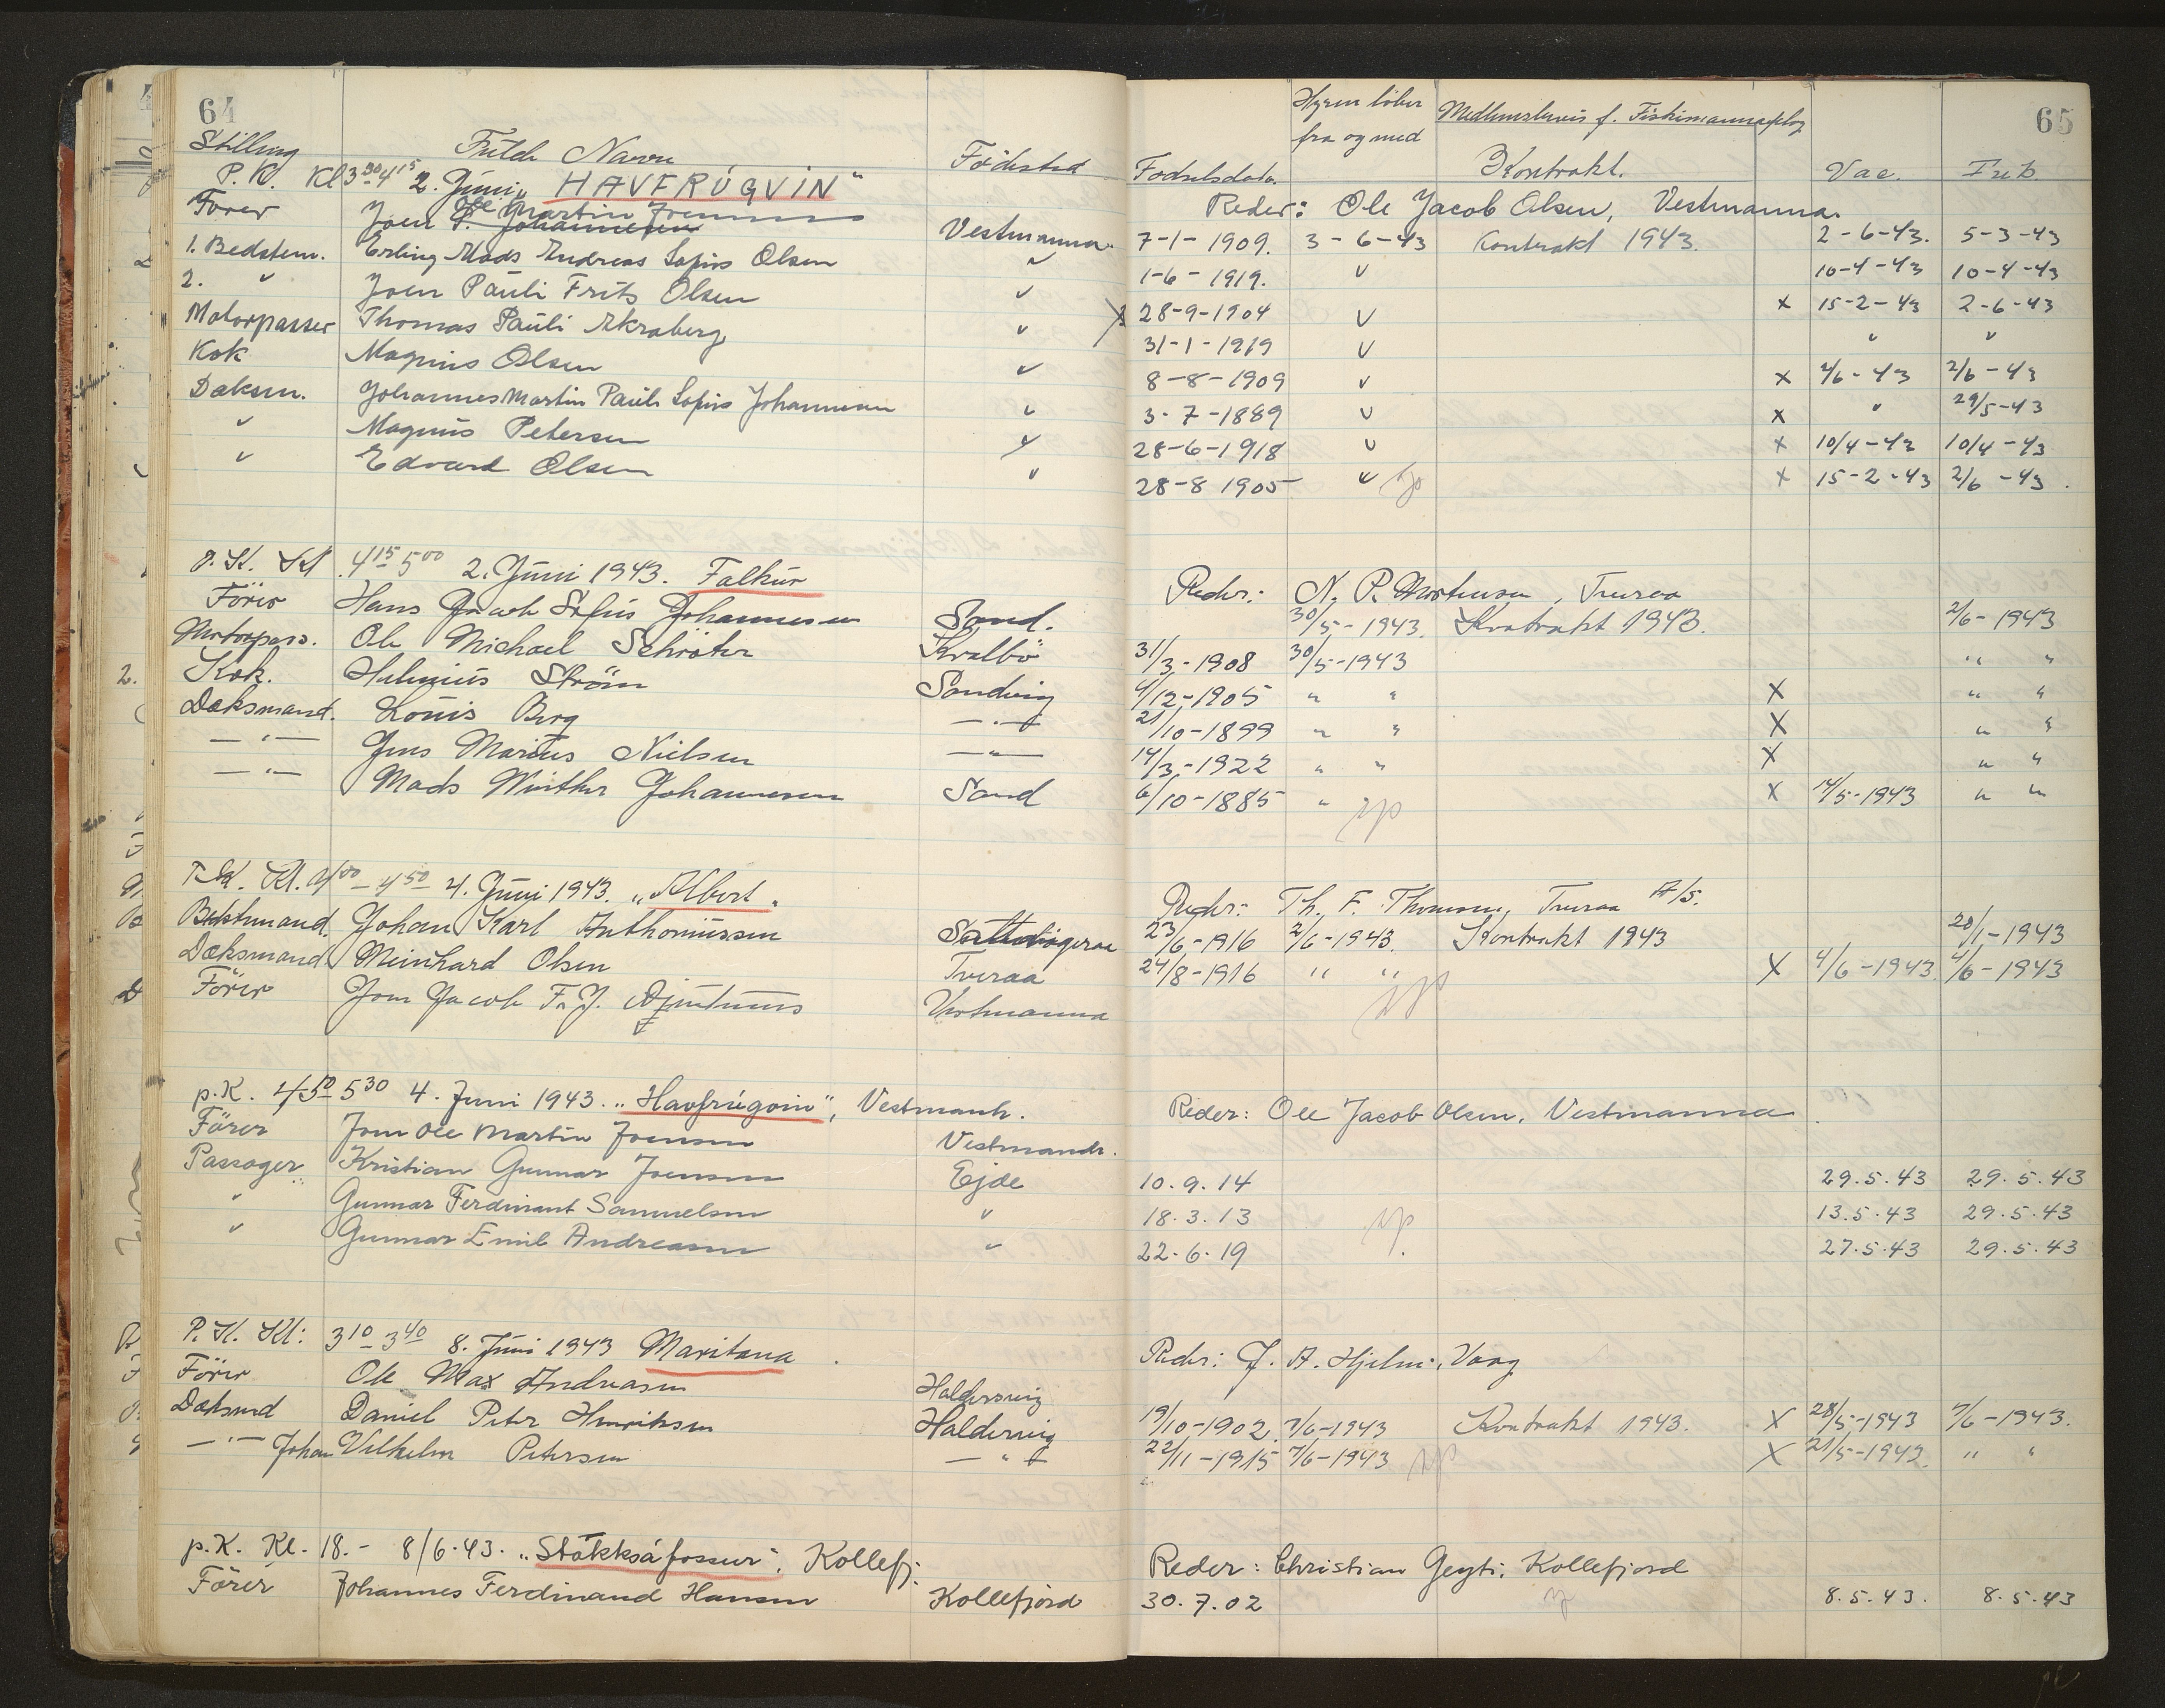 64
65
Stilling Fulde Navn Födested Födselsdata. Hyren löber fra og med Medlemsbevis f. Kontrakt. Vac. Frib.
P.K. Kl 3 30 - 4 15 2. Júni „HAVFRÚGVIN“ Reder: Ole Jacob Olsen, Vestmanna.
Förer Joen Ole Martin Joensen Vestmanna 7-1-1909. 3-6-43 Kontrakt 1943. 2-6-43. 5-3-43
1. Bedstem. Erling Mads Andreas Sofus Olsen " 1-6-1919. " 10-4-43 10-4-43
2. " Joen Pauli Frits Olsen " 28-9-1904 " x 15-2-43 2-6-43
Motorpasser Thomas Pauli Akraberg " 31-1-1919 " " "
Kok Magnus Olsen " 8-8-1909 " x 2/6-43 2/6-43
Dæksm. Johannes Martin Pauli Sofus Johannesen " 3-7-1889 " x " 29/5-43
" Magnus Petersen " 28-6-1918 " x 10/4-43 10/4-43
" Edvard Olsen " 28-8 1905 " x 15-2-43 2/6-43
P.K. Kl. 4 15 5 00 2. Júni 1943. Falkur Reder: N. P. Mortensen, Tveraa
Förer Hans Jacob Sofus Johannesen Sand. 30/5-1943. Kontrakt 1943. 2/6-1943
Motorpass. Ole Michael Schröter Kvalbö 31/3-1908 30/5-1943 " "
Kok. Ström Sandvig 4/12-1905 " " X " "
Dæksmand. Louis Berg -"- 21/10-1899 " " X " "
-"- Jens Marius Nielsen -"- 14/3-1922 " " X " "
-"- Mads Winther Johannesen Sand 6/10-1885 " X 14/5-1943 " "
P.K. Kl. 4 00 - 4 50 4. Júni 1943. „Albert“ Reder: Th. F. Thomsen, Tveraa A/S.
Bedstmand. Johan Karl Anthoniussen 23/6-1916 2/6-1943. Kontrakt 1943 28/1-1943
Dæksmand. Meinhard Olsen Tveraa 24/8-1916 " " X 4/6-1943. 4/6-1943
Förer Jom Jacob F. J. Vestmanna
p.K. 4 50 5 30 4. Juni 1943. „Havfrúgvin“, Vestmanh. Reder: Ole Jacob Olsen, Vestmanna
Förer Joen Ole Martin Joensen Vestmanh.
Passager Kristian Gunnar Joensen Ejde 10.9.14 29.5.43 29.5.43
" Gunnar Ferdinant Samuelsen " 18.3.13 13.5.43 29.5.43
" Gunnar Emil Andreasen " 22.6.19 27.5.43 29.5.43
P.K. Kl: 3 10 - 3 40 8. Júni 1943 Maritana Reder: J. A. Hjelm, Vaag
Förer Ole Max Andreasen Haldersvig
Dæksmd Daniel Peter Henriksen Haldersvig 19/10-1902. 7/6-1943 Kontrakt 1943. X 28/5-1943 7/6-1943.
-"- Johan Vilhelm Petersen -"- 22/11-1915 7/6-1943 X 21/5-1943. " "
p.K. Kl. 18.- 8/6.43. „Stökksáfossur“, Kollefj. Reder: Christian Geyti, Kollefjord
Förer Johannes Ferdinand Hansen Kollefjord 30.7.02 8.5.43. 8.5.43